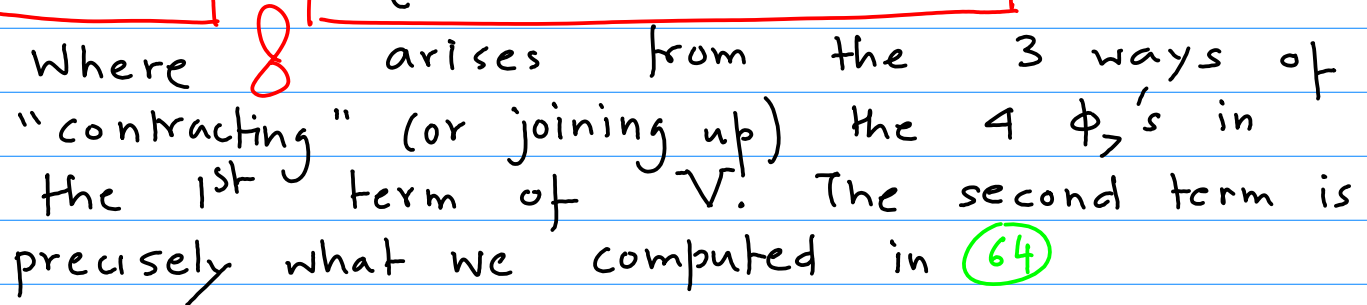 Where 8 arises from the 3 ways of
"contracting" (or joining up) the 4 ϕ>'s in
the 1st term of V. The second term is
precisely what we computed in 64